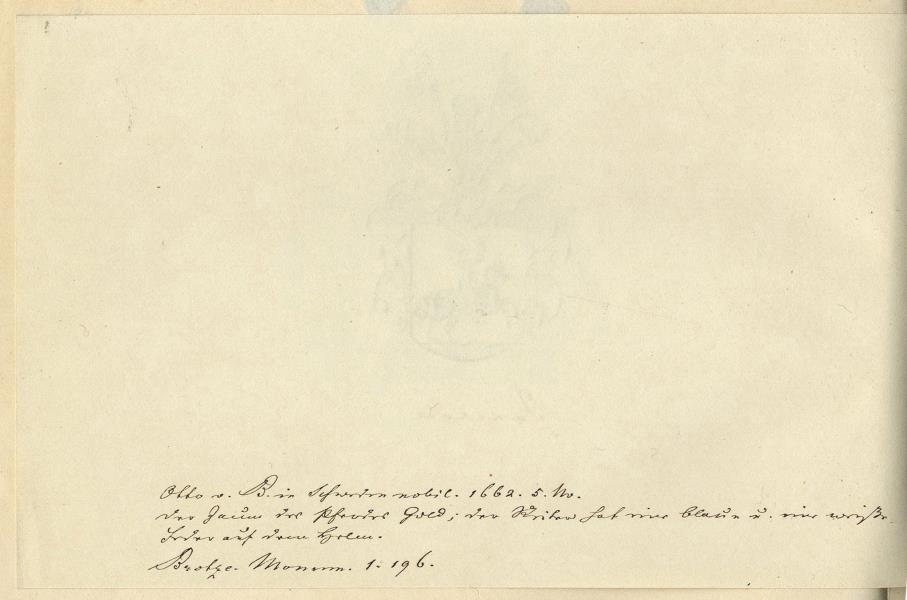 Otto v. B. in Schweden nobil. 1662. 5. Nv.
der Zaum des Pferdes Gold; der Reiter hat eine blaue u. eine weiße
Feder auf dem Helm.
Brotze. Monum. 1. 196.